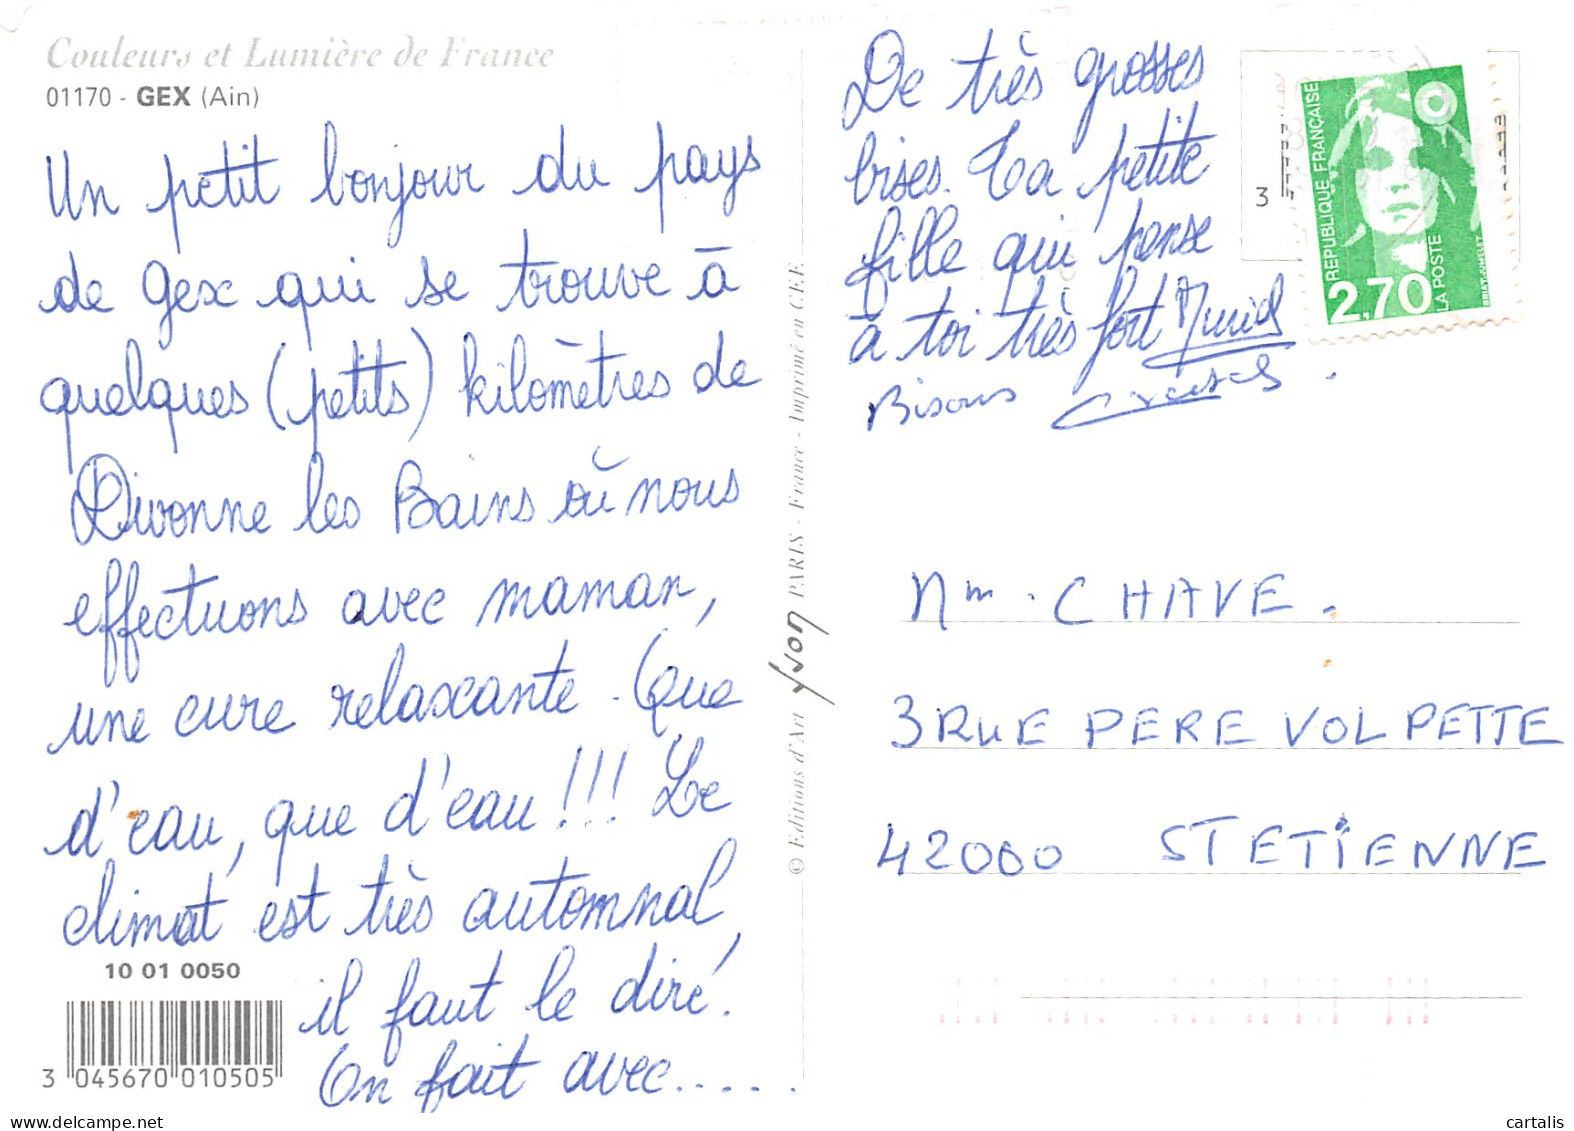 Couleurs et Lumière de France
01170 - GEX (Ain)
Un petit bonjour du pays
de Gex qui se trouve à
quelques (petits) kilomètres de
Divonne les Bains où nous
effectuons avec maman,
une cure relaxante. Que
d'eau, que d'eau !!! Le
climat est très automnal,
il faut le dire.
On fait avec.....
10 01 0050
3 045670 010505
© Editions d'Art yvon PARIS - France - Imprimé en C.E.E.
De très grosses
bises. Ta petite
fille qui pense
à toi très fort Muriel
Bisous
3
REPUBLIQUE FRANÇAISE
2,70
LA POSTE
BRIAT-JUMELET
Mm. CHAVE.
3 RUE PERE VOLPETTE
42000 ST ETIENNE
www.delcampe.net
cartalis